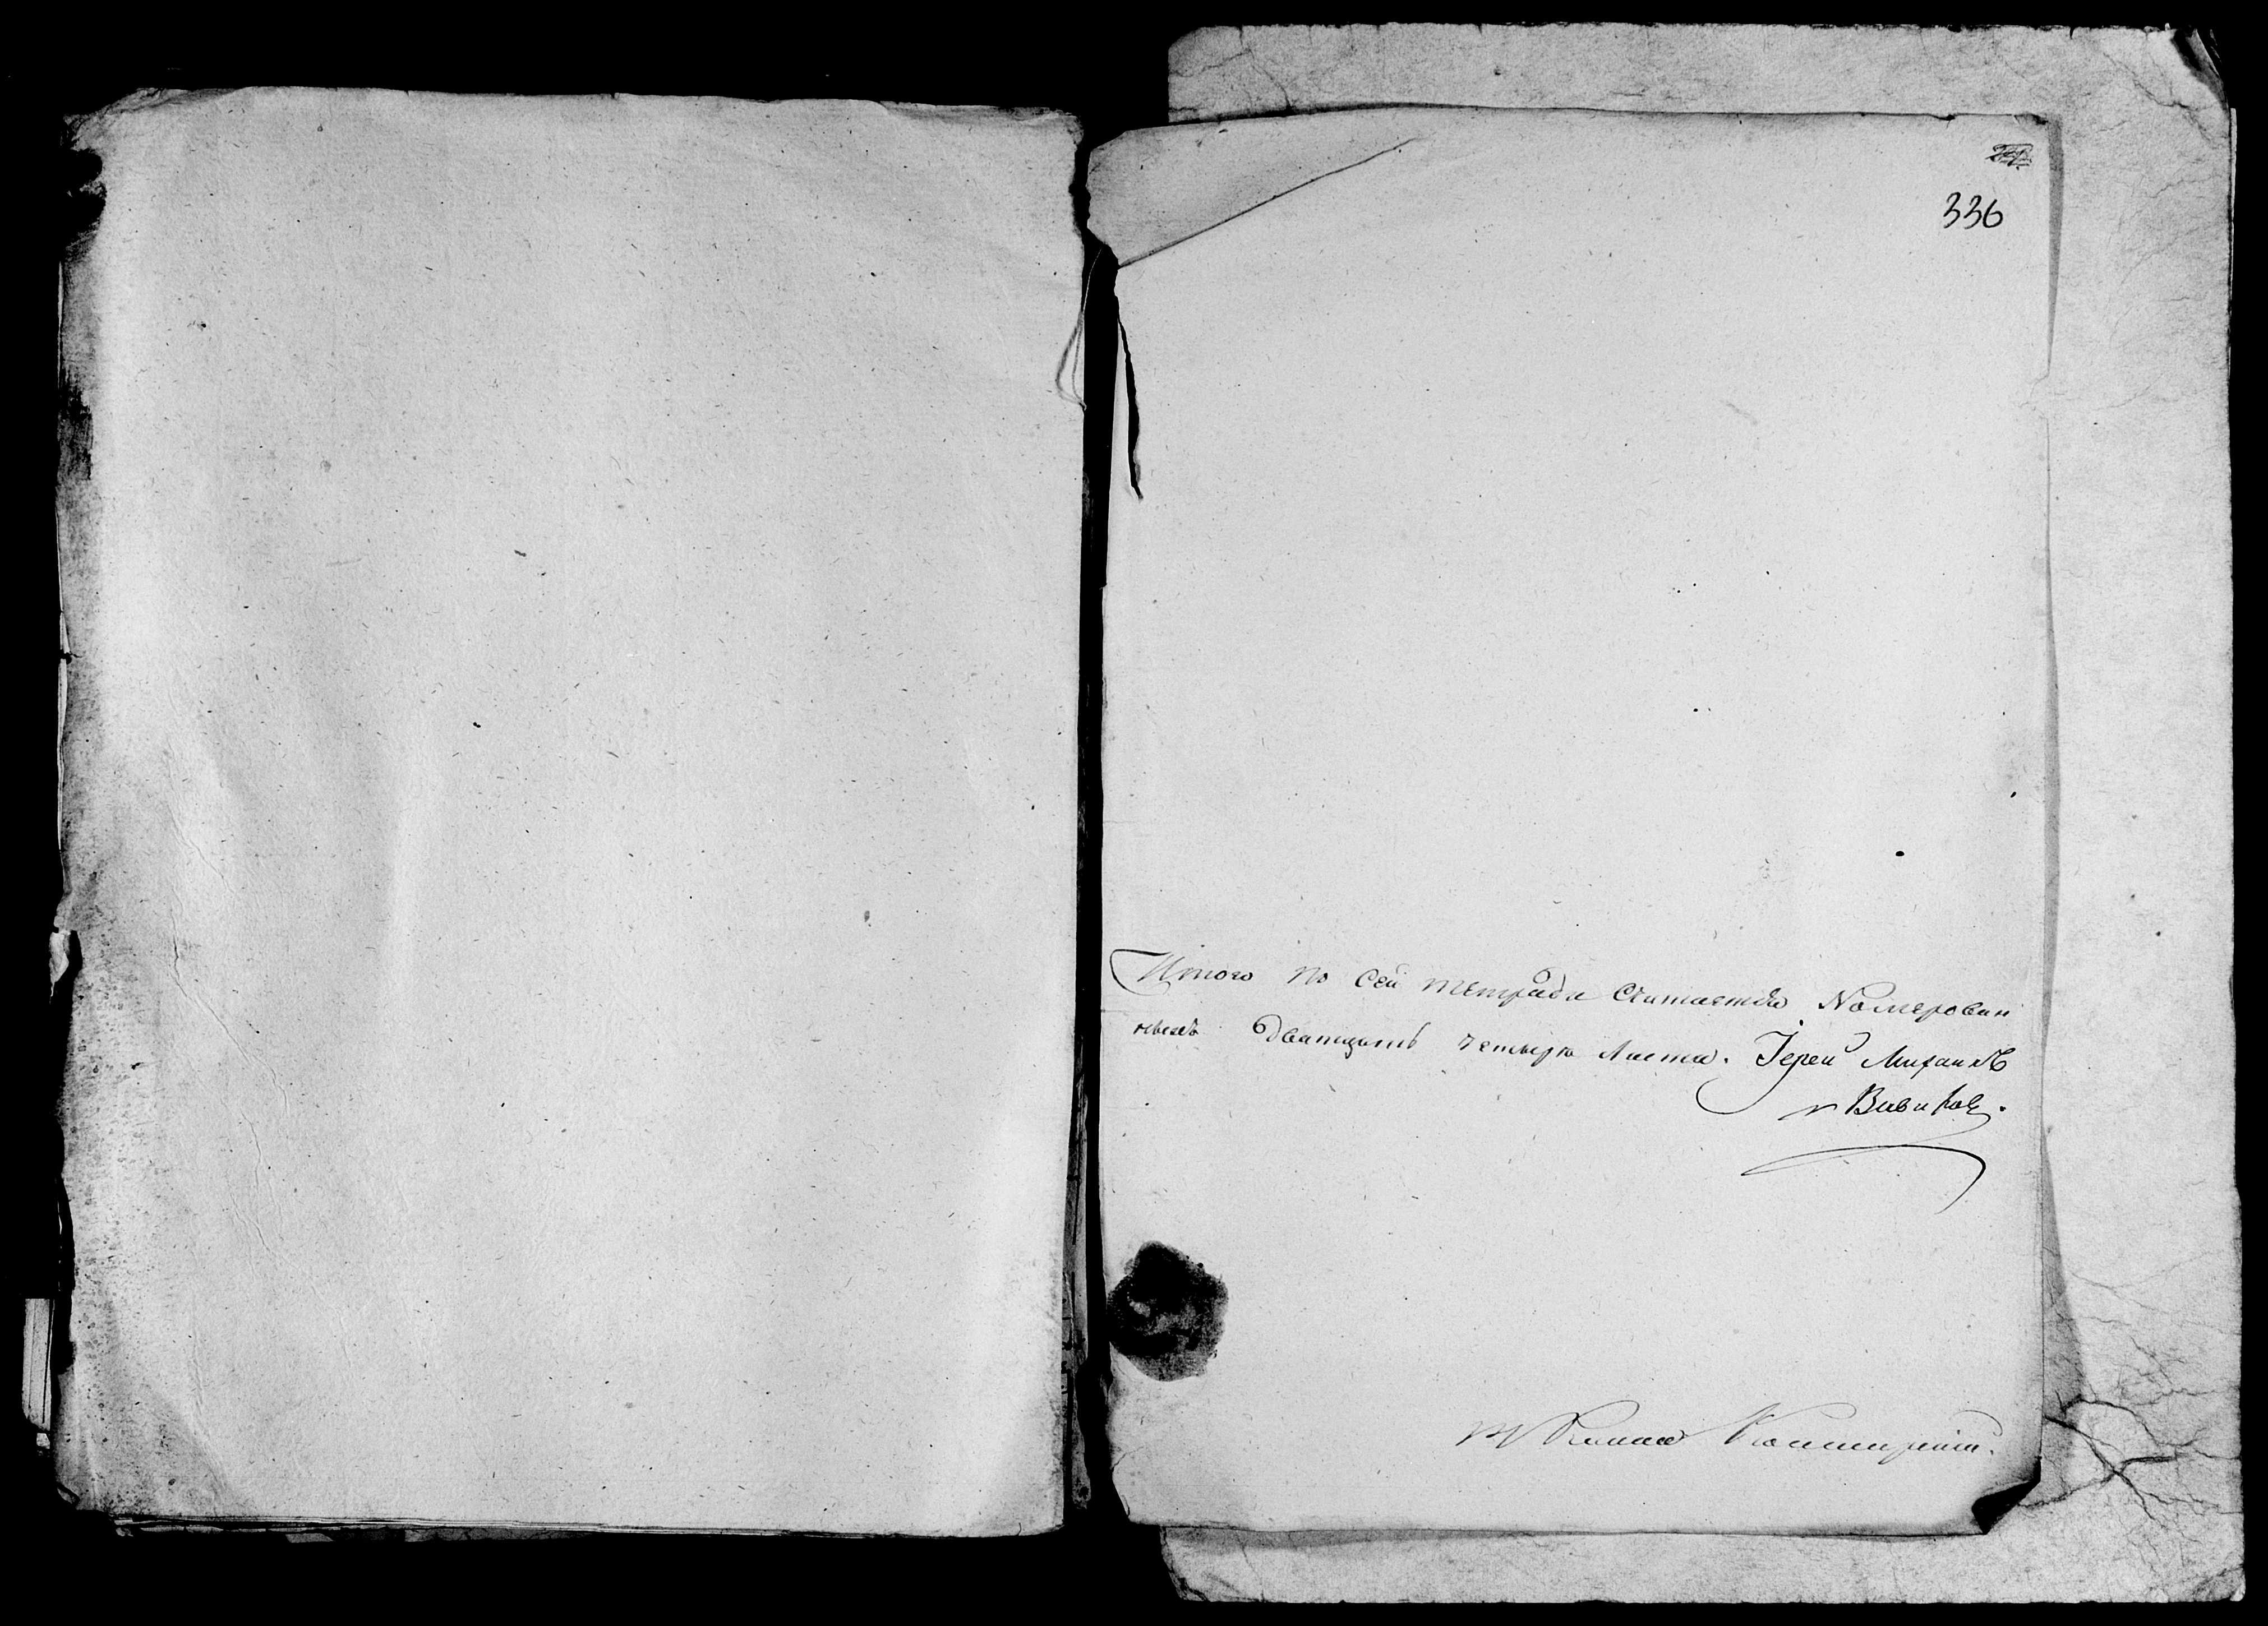 24
336
Итого по сей тетради Считается Номерован
ныхъ Дватцать четыре листа. Іерей Михаилъ
Вивиков.